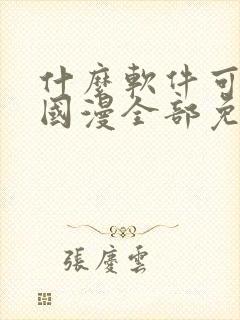 什麼軟件可
國漫全部免
張慶雲